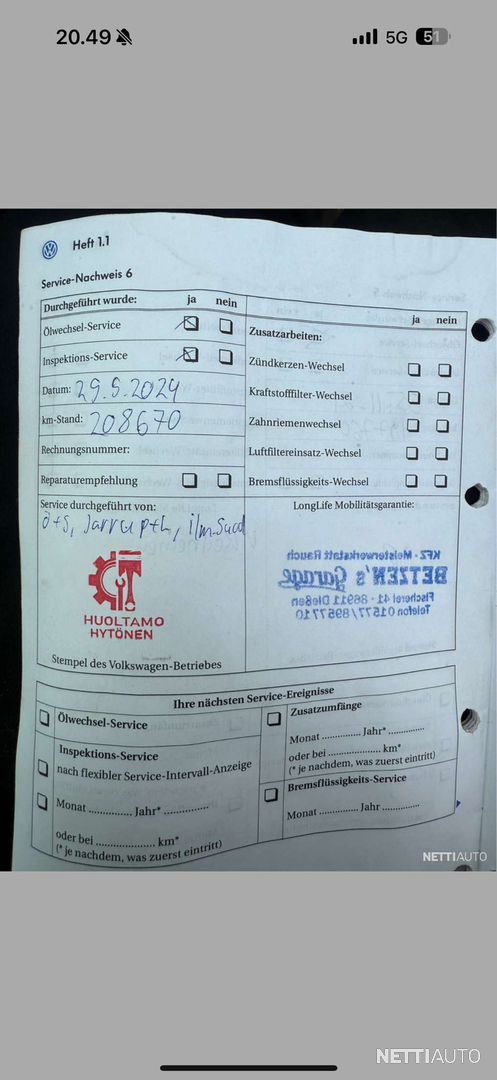 20.49
5G 51
Heft 1.1
Service-Nachweis 6
Durchgeführt wurde: ja nein
Ölwechsel-Service
Inspektions-Service
Datum: 29.5.2024
km-Stand: 208670
Rechnungsnummer:
Reparaturempfehlung
ja nein
Zusatzarbeiten:
Zündkerzen-Wechsel
Kraftstofffilter-Wechsel
Zahnriemenwechsel
Luftfiltereinsatz-Wechsel
Bremsflüssigkeits-Wechsel
Service durchgeführt von:
ö+s, Jarrup+L, ilm.Suod
HUOLTAMO
HYTÖNEN
Stempel des Volkswagen-Betriebes
LongLife Mobilitätsgarantie:
KFZ - Meisterwerkstatt Rauch
BETZEN's Garage
Fischerei 41 · 86911 Dießen
Telefon 01577/8957710
Ihre nächsten Service-Ereignisse
Ölwechsel-Service
Inspektions-Service
nach flexibler Service-Intervall-Anzeige
Monat .............. Jahr* ..............
oder bei .................... km*
(* je nachdem, was zuerst eintritt)
Zusatzumfänge
Monat ............. Jahr* .............
oder bei .................. km*
(* je nachdem, was zuerst eintritt)
Bremsflüssigkeits-Service
Monat ............. Jahr .............
NETTIAUTO
NETTIAUTO